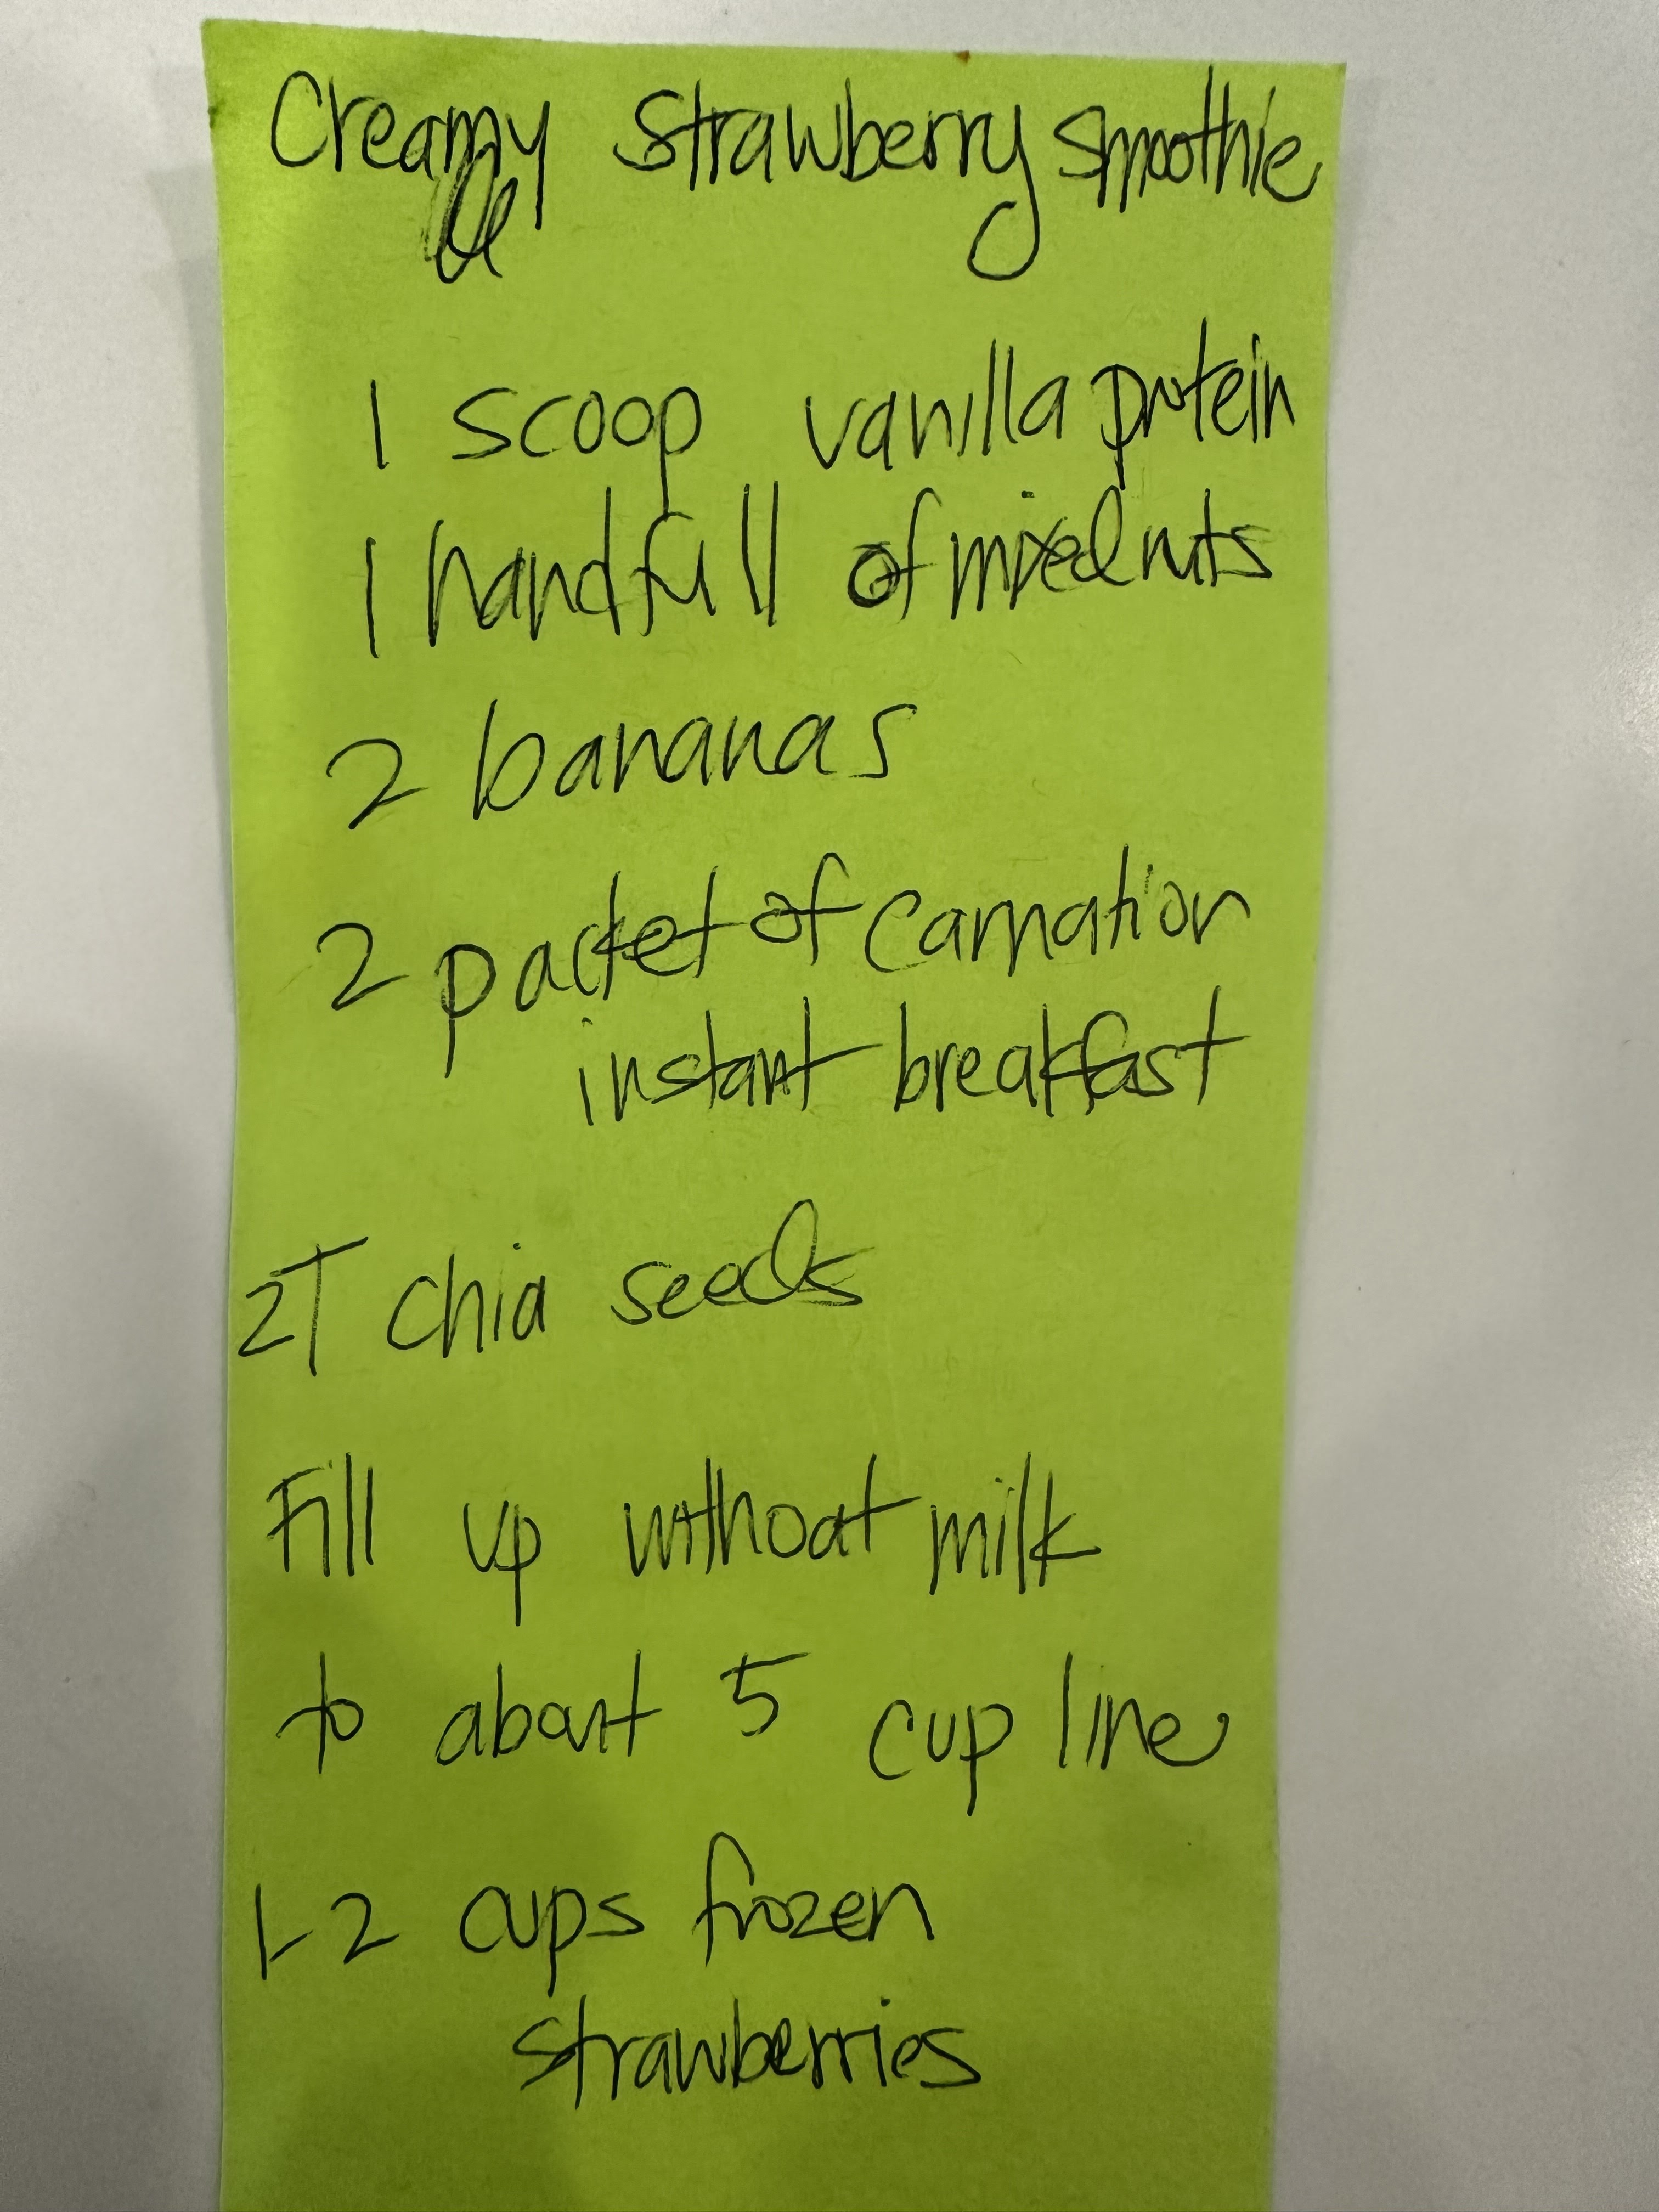 Creamy Strawberry smoothie
1 scoop vanilla protein
1 handfull of mixed nuts
2 bananas
2 packet of carnation
instant breakfast
2T chia seeds
Fill up with oat milk
to about 5 cup line
1-2 cups frozen
strawberries